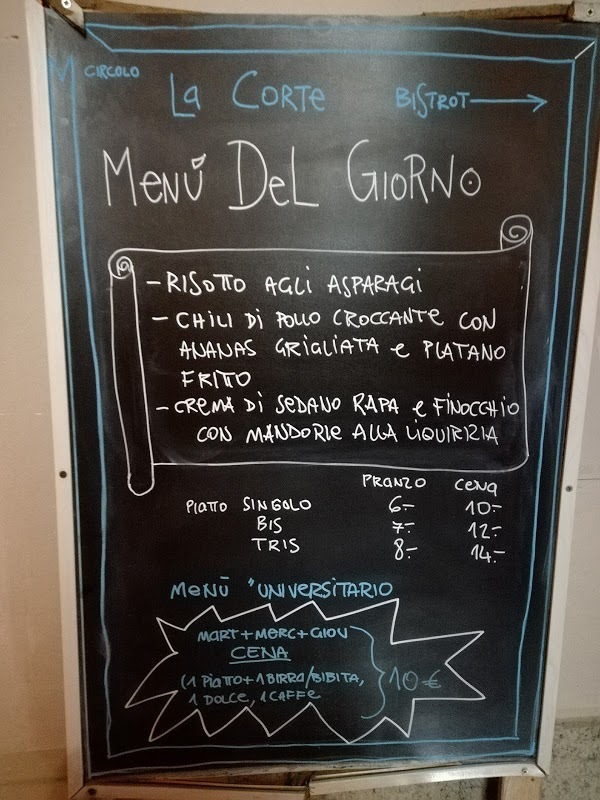 CIRCOLO
LA CORTE
BISTROT
MENÙ DEL GIORNO
- RISOTTO AGLI ASPARAGI
- CHILI DI POLLO CROCCANTE CON
ANANAS GRIGLIATA e PLATANO
FRITTO
- CREMA DI SEDANO RAPA e FINOCCHIO
CON MANDORLE ALLA LIQUIRIZIA
PRANZO CENA
PIATTO SINGOLO 6.- 10.-
BIS 7.- 12.-
TRIS 8.- 14.-
MENÙ "UNIVERSITARIO
MART + MERC + GIOV
CENA
(1 PIATTO + 1 BIRRA/BIBITA,
1 DOLCE, 1 CAFFE
10 €